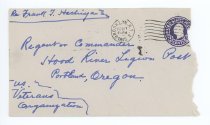 Re Frank T. Hachiya
Regent or Commander
Hood River Legion Post
Portland, Oregon
U.S.
Veterans
Organization